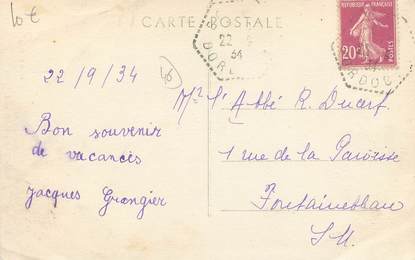 10 €
CARTE POSTALE
REPUBLIQUE FRANCAISE
20c
POSTES
22
34
DOR
RDOG
22/9/34
46
Bon souvenir
de vacances
Jacques Grangier
Mr l'Abbé R. Ducerf
1 rue de la Paroisse
Fontainebleau
S.M.